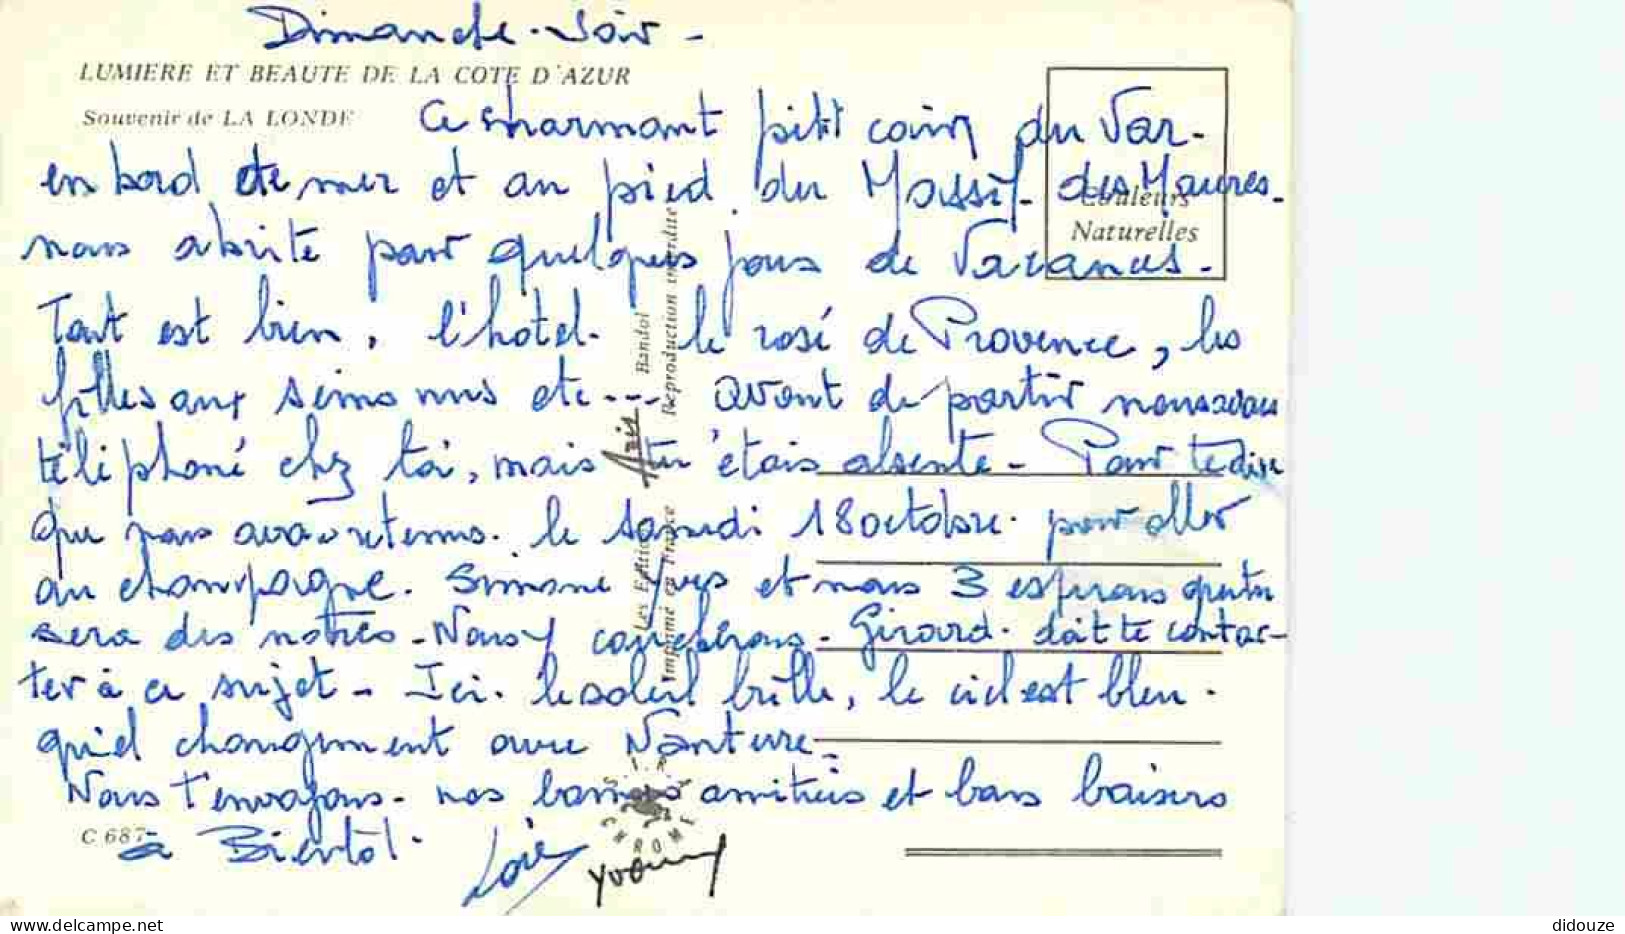 Dimanche - Soir -
LUMIERE ET BEAUTE DE LA COTE D'AZUR
Souvenir de LA LONDE
Ce charmant petit coin du Var -
en bord de mer et au pied du Massif des Maures -
Couleurs
Naturelles
nous abrite pour quelques jours de Vacances -
Tout est bien, l'hotel. le rosé de Provence, les
filles aux seins nus etc --- avant de partir nous avons
téléphoné chez toi, mais tu étais absente - Pour te dire
que nous avons retenus. le samedi 18 octobre. pour aller
au champagne. Simone Yves et nous 3 espérons que tu
sera des notres - Nous y coucherons - Girard. doit te contac-
ter à ce sujet - Ici. le soleil brille, le ciel est bleu.
quel changement avec Nanterre -
Nous t'envoyons - nos bonnes amitiés et bons baisers
à Bientôt.
C 687
Yvonne
Les Editions Aris Bandol
Imprimé en France Reproduction interdite
S.I.R.A.
CHROME
didouze